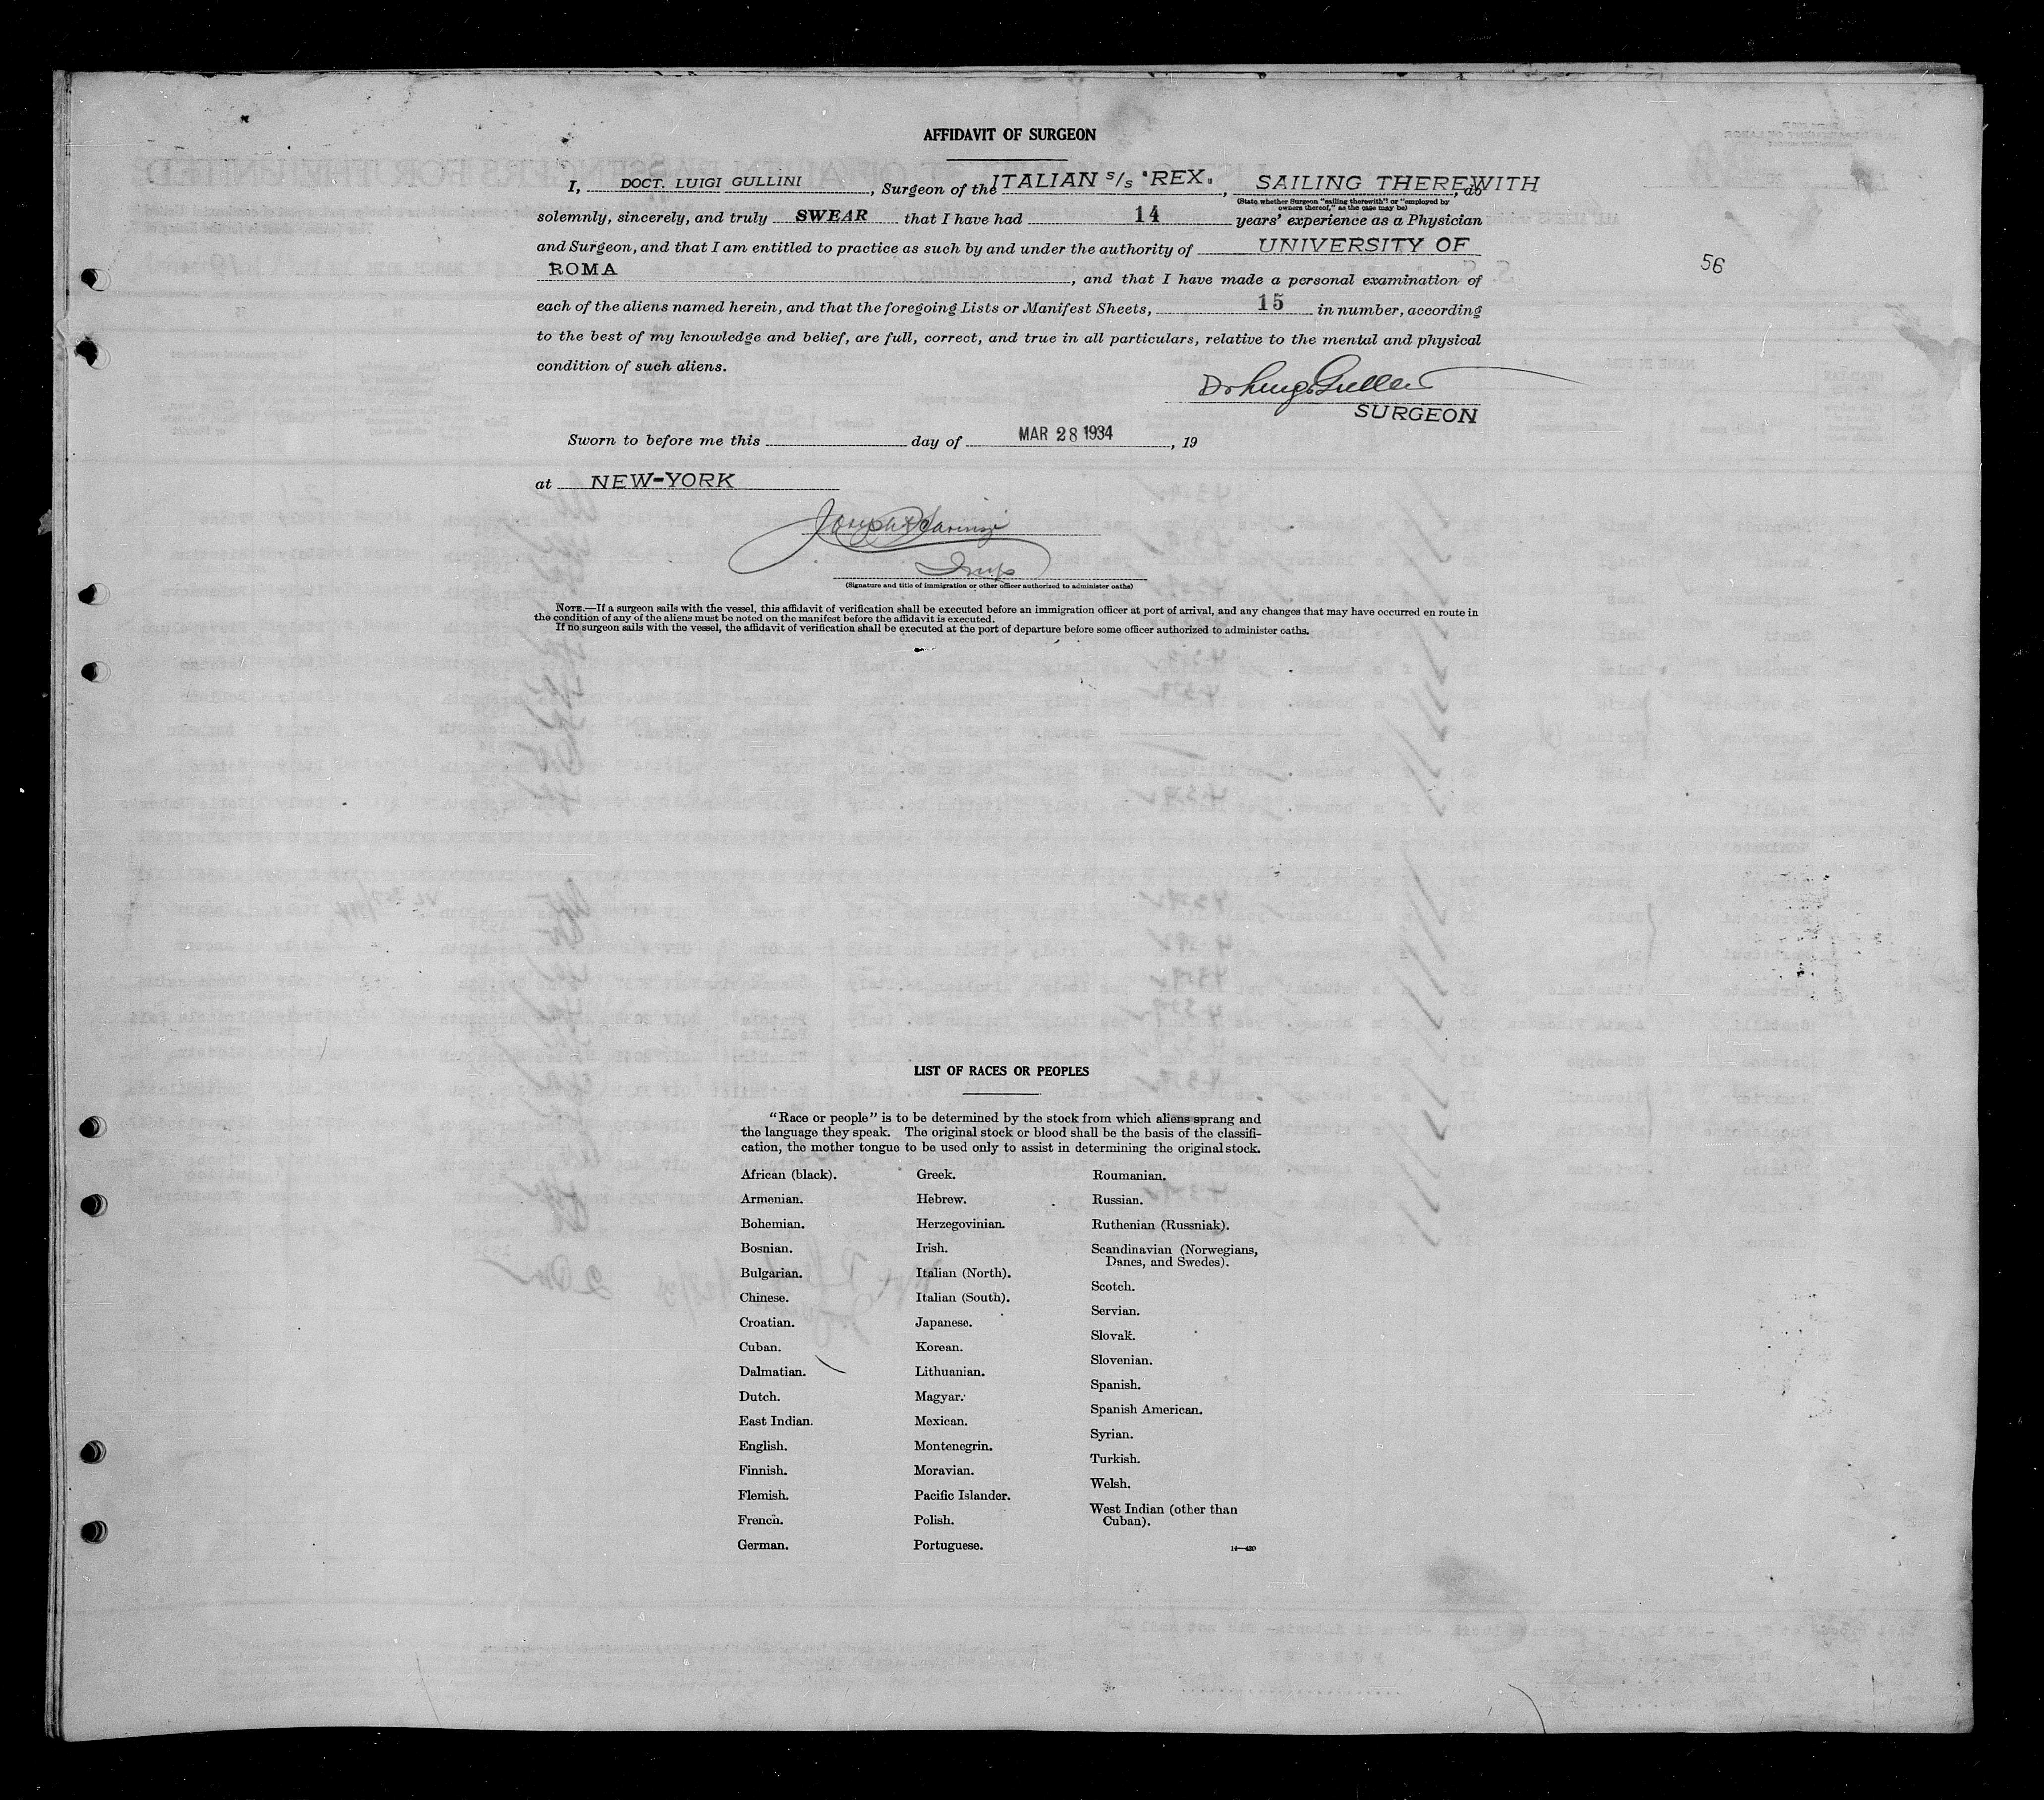 AFFIDAVIT OF SURGEON
I, DOCT. LUIGI GULLINI, Surgeon of the ITALIAN S/S "REX", SAILING THEREWITH, do
(State whether Surgeon "sailing therewith" or "employed by
owners thereof," as the case may be)
solemnly, sincerely, and truly SWEAR that I have had 14 years' experience as a Physician
and Surgeon, and that I am entitled to practice as such by and under the authority of UNIVERSITY OF
ROMA, and that I have made a personal examination of
56
each of the aliens named herein, and that the foregoing Lists or Manifest Sheets, 15 in number, according
to the best of my knowledge and belief, are full, correct, and true in all particulars, relative to the mental and physical
condition of such aliens.
SURGEON
Sworn to before me this day of MAR 28 1934, 19
at NEW-YORK
(Signature and title of immigration or other officer authorized to administer oaths)
NOTE.—If a surgeon sails with the vessel, this affidavit of verification shall be executed before an immigration officer at port of arrival, and any changes that may have occurred en route in
the condition of any of the aliens must be noted on the manifest before the affidavit is executed.
If no surgeon sails with the vessel, the affidavit of verification shall be executed at the port of departure before some officer authorized to administer oaths.
LIST OF RACES OR PEOPLES
"Race or people" is to be determined by the stock from which aliens sprang and
the language they speak. The original stock or blood shall be the basis of the classifi-
cation, the mother tongue to be used only to assist in determining the original stock.
African (black).
Armenian.
Bohemian.
Bosnian.
Bulgarian.
Chinese.
Croatian.
Cuban.
Dalmatian.
Dutch.
East Indian.
English.
Finnish.
Flemish.
French.
German.
Greek.
Hebrew.
Herzegovinian.
Irish.
Italian (North).
Italian (South).
Japanese.
Korean.
Lithuanian.
Magyar.
Mexican.
Montenegrin.
Moravian.
Pacific Islander.
Polish.
Portuguese.
Roumanian.
Russian.
Ruthenian (Russniak).
Scandinavian (Norwegians,
Danes, and Swedes).
Scotch.
Servian.
Slovak.
Slovenian.
Spanish.
Spanish American.
Syrian.
Turkish.
Welsh.
West Indian (other than
Cuban).